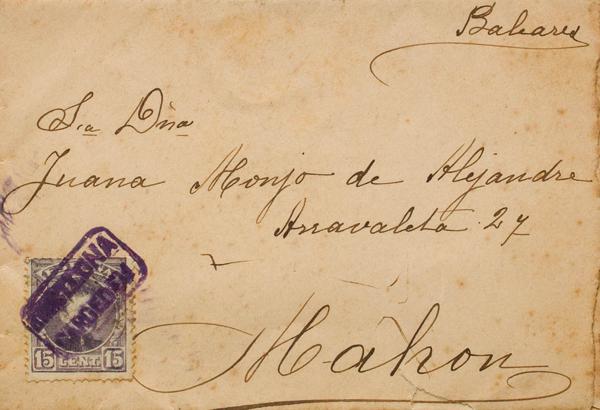 Baleares
S.a Dña
Juana Monjo de Alejandre
Arravaleta 27
Mahon
15 CENT. 15